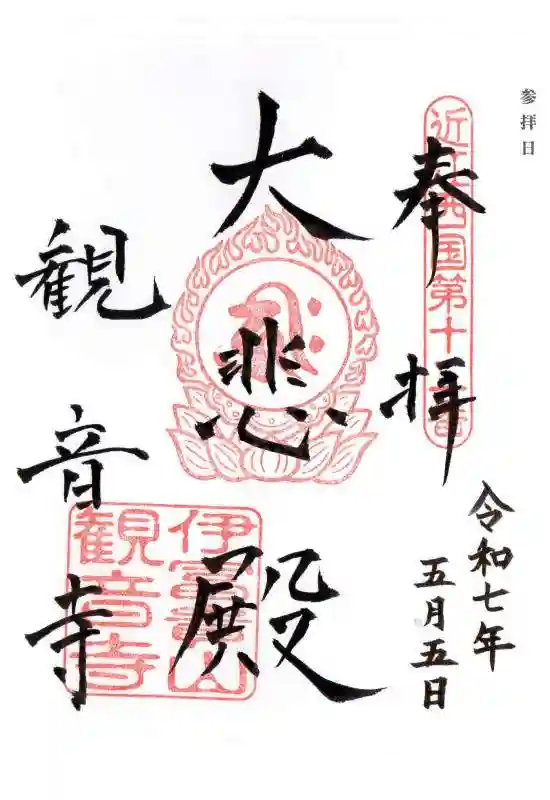 参拝日
奉拝
近江西国第十
令和七年
五月五日
大悲殿
観音寺
伊富貴山
観音寺